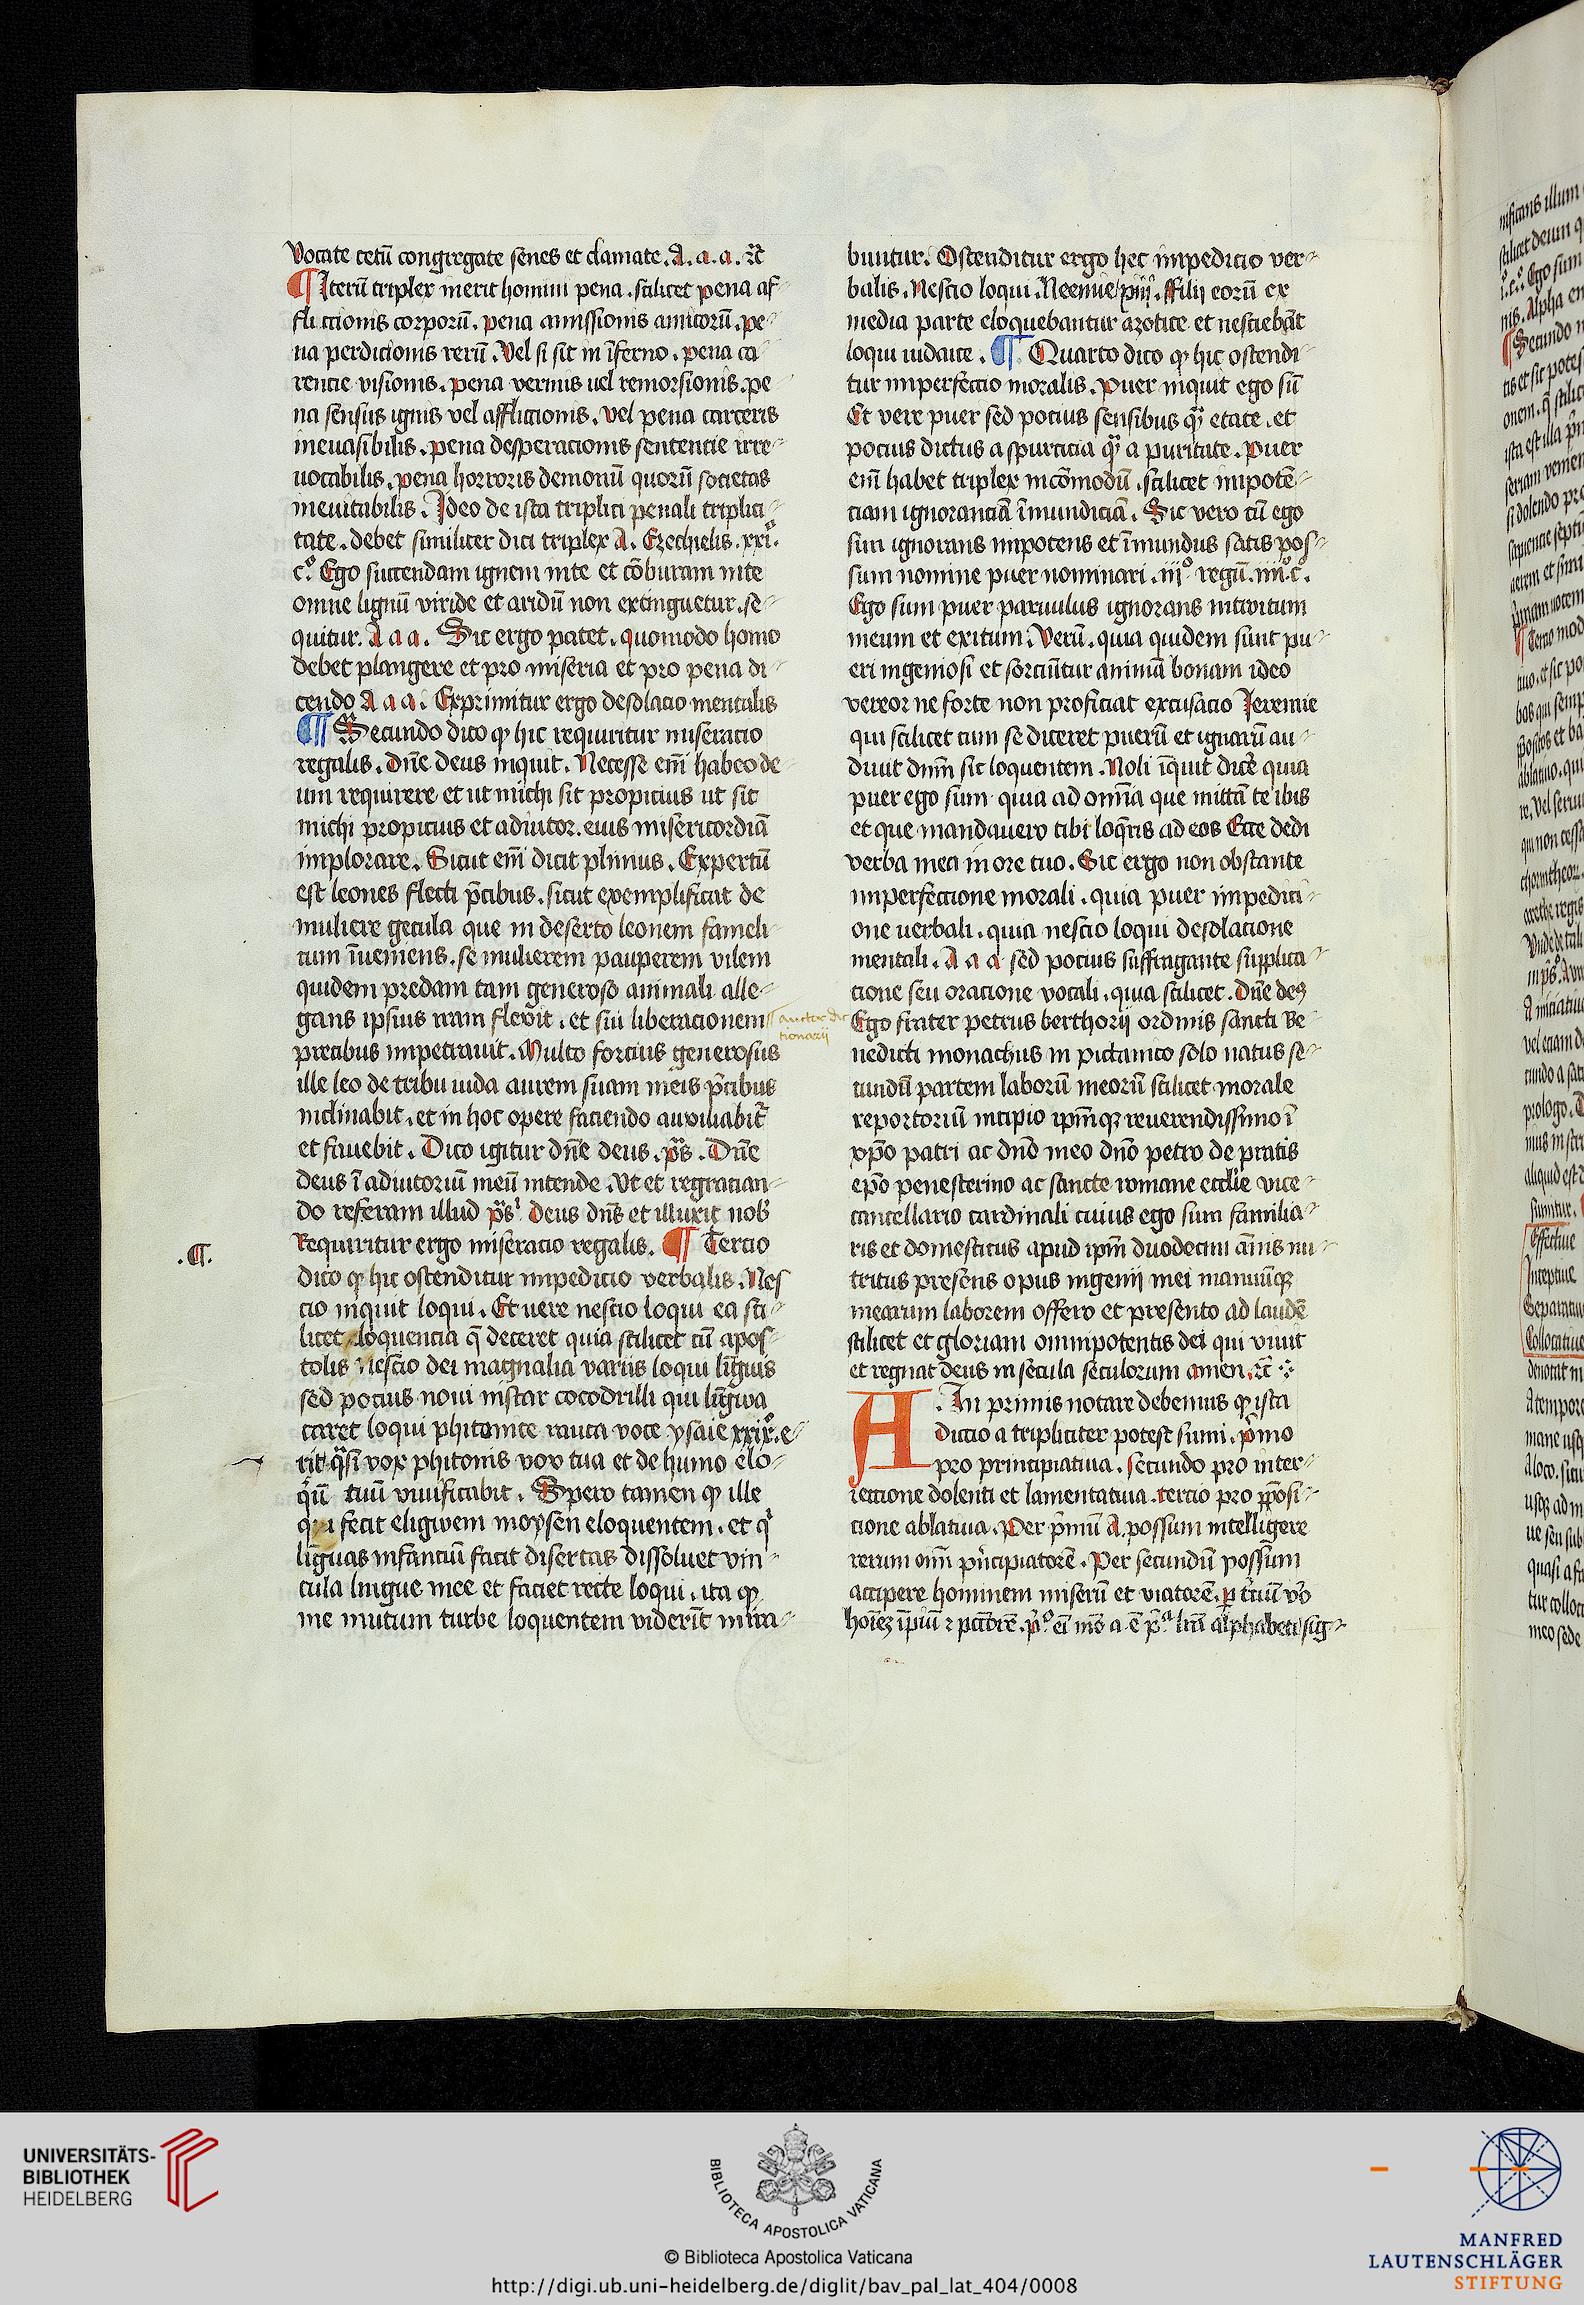 vocate cetū congregate senes et clamate. A. a. a. ꝛc̄
¶ Iterū triplex inerit homini pena. scilicet pena af-
flictionis corporū. pena amissionis amicorū. pe-
na perdicionis rerū. Vel si sit in īferno. pena ca-
rencie visionis. pena vermis uel remorsionis. pe-
na sensus ignis vel afflictionis. vel pena carceris
ineuasibilis. pena desperacionis sentencie irre-
uocabilis. pena horroris demonū quorū societas
ineuitabilis. Ideo de ista triplici penali triplici-
tate. debet similiter dici triplex A. Ezechielis. xxi.
c°. Ego succendam ignem in te et cōburam in te
omne lignū viride et aridū non extinguetur. se-
quitur. A a a. Sic ergo patet. quomodo homo
debet plangere et pro miseria et pro pena di-
cendo A a a. Exprimitur ergo desolacio mentalis
¶ Secundo dico ꝙ hic requiritur miseracio
regalis. dn̄e deus inquit. Necesse em̄ habeo de-
um requirere et ut michi sit propicius ut sit
michi propicius et adiutor. eius misericordiā
implorare. Sicut em̄ dicit plinius. Expertū
est leones flecti p̄cibus. sicut exemplificat de
muliere getula que in deserto leonem fameli-
cum īueniens. se mulierem pauperem vilem
quidem predam tam generoso animali alle-
gans ipsius iram flexit. et sui liberacionem
precibus impetrauit. Multo forcius generosus
ille leo de tribu iuda aurem suam meis p̄cibus
inclinabit. et in hoc opere faciendo auxiliabit̄
et fauebit. Dico igitur dn̄e deus. pš. Dn̄e
deus ī adiutoriū meū intende. Vt et regracian-
do referam illud pš. deus dn̄s et illuxit nob̄
Requiritur ergo miseracio regalis. ¶ Tercio
.¶.
dico ꝙ hic ostenditur impedicio verbalis. Nes
cio inquit loqui. Et uere nescio loqui ea sci-
licet eloquencia q̄ deceret quia scilicet cū apos-
tolis nescio dei magnalia variis loqui līguis
sed pocius noui instar cocodrilli qui līgwa
caret loqui phitonice rauca voce ysaie xxix. e-
rit q̄si vox phitonis vox tua et de humo elo-
qūi tuū viuificabit. Spero tamen ꝙ ille
qui fecit eligwem moysen eloquentem. et qͥ
līguas infanciū facit disertas dissoluet vin-
cula lingue mee et faciet recte loqui. ita ꝙ
me mutum turbe loquentem viderīt mira-
auctor dic
tionarij
buntur. Ostenditur ergo hec impedicio ver-
balis. Nescio loqui. Neemie xiij. ffilij eorū ex
media parte eloquebantur azotice et nesciebāt
loqui iudaice. ¶ Quarto dico ꝙ hic ostendi-
tur imperfectio moralis. puer inquit ego sū
Et vere puer sed pocius sensibus qͣ etate. et
pocius dictus a spurcicia qͣ a puritate. puer
em̄ habet triplex incōmodū. scilicet impotē-
ciam ignoranciā īmundiciā. Sic vero cū ego
sim ignorans impotens et īmundus satis pos-
sum nomine puer nominari. iij° regū. iij° c°.
Ego sum puer paruulus ignorans introitum
meum et exitum. Verū. quia quidem sunt pu-
eri ingeniosi et sorciūtur animā bonam ideo
vereor ne forte non proficiat excusacio Jeremie
qui scilicet cum se diceret puerū et ignarū au-
diuit dnm̄ sic loquentem. Noli īquit dicē quia
puer ego sum quia ad omīa que mittā te ibis
et que mandauero tibi loq̄ris ad eos Ecce dedi
verba mea in ore tuo. Sic ergo non obstante
imperfectione morali. quia puer impedici-
one uerbali. quia nescio loqui desolacione
mentali. A a a sed pocius suffragante supplica-
cione seu oracione vocali. quia scilicet. dn̄e deꝰ
Ego frater petrus berthorij ordinis sancti Be-
nedicti monachus in pictauico solo natus se-
cundū partem laborū meorū scilicet morale
reportoriū incipio ipm̄qꝫ reuerendissimo ī
xp̄o patri ac dn̄o meo dn̄o petro de pratis
ep̄o penesterino ac sancte romane eccl̄ie vice-
cancellario cardinali cuius ego sum familia-
ris et domesticus apud ipm̄ duodecim ān̄is nu-
tritus presens opus ingenij mei manuūqꝫ
mearum laborem offero et presento ad laudē
scilicet et gloriam omnipotentis dei qui viuit
et regnat deus in secula seculorum amen. ꝛc̄
A. In primis notare debemus ꝙ ista
dictio a tripliciter potest sumi. p̄mo
pro principiatiua. secundo pro inter-
iectione dolenti et lamentatiua. tercio pro p̄posi-
cione ablatiua. Per p̄mū A. possum intelligere
rerum oīm p̄ncipiatorē. Per secundū possum
accipere hominem miserū et viatorē. ꝑ t̄ciū v̄o